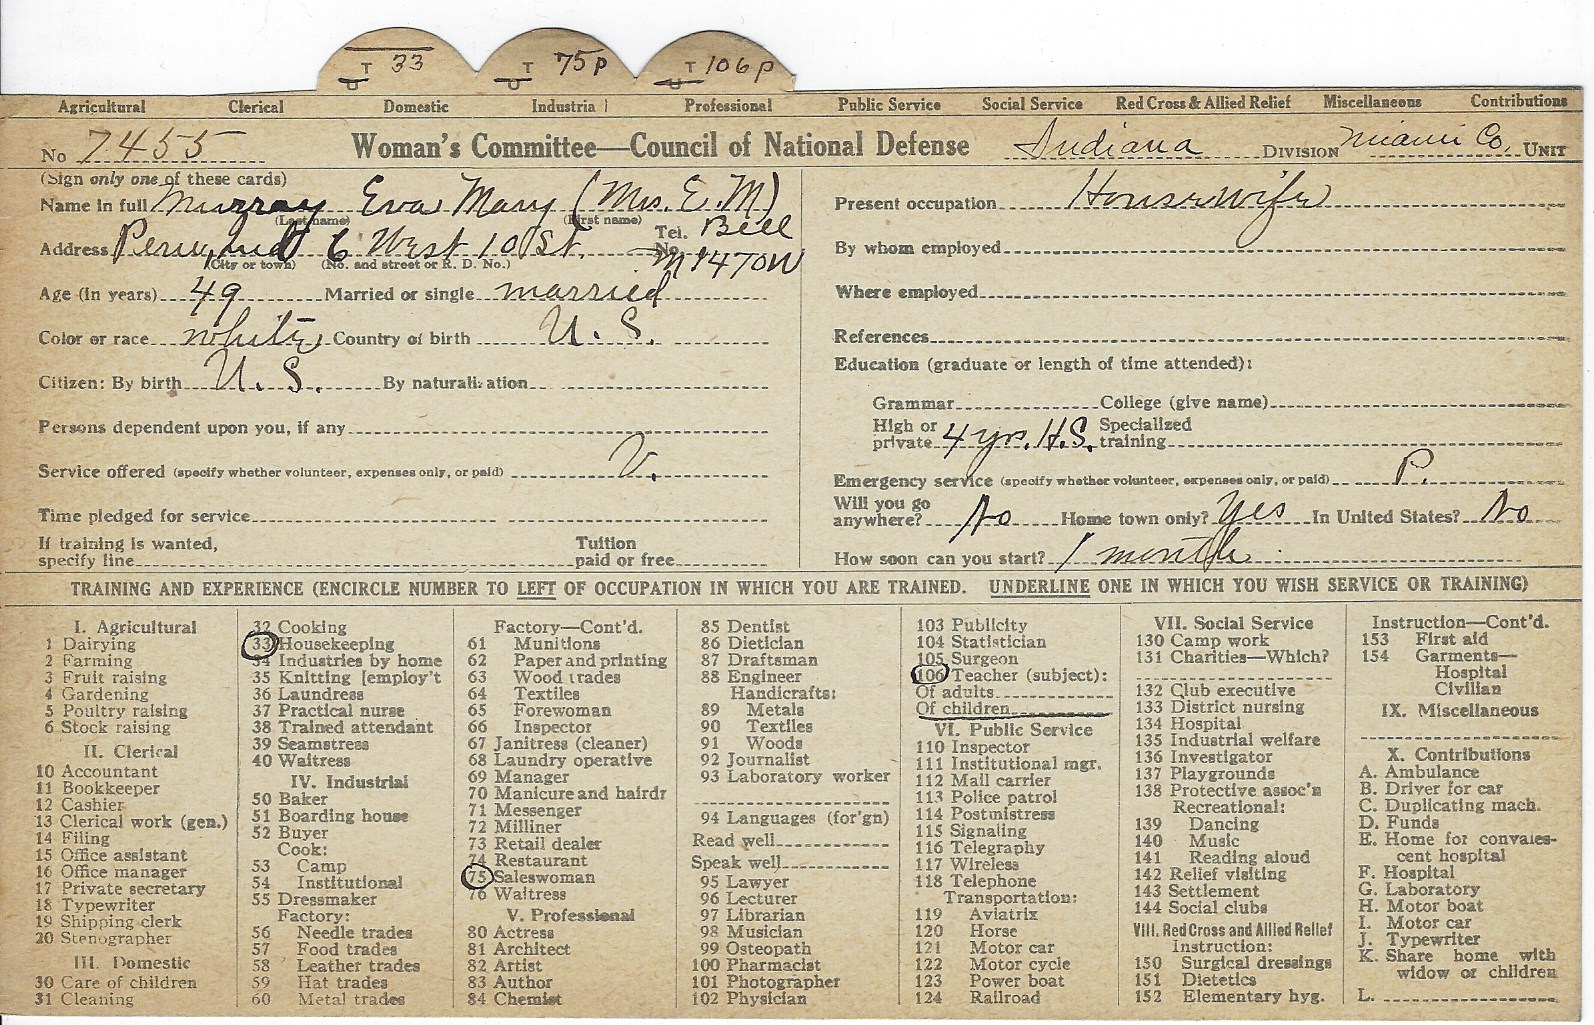 T 33 T 75p T 106p
Agricultural Clerical Domestic Industrial Professional Public Service Social Service Red Cross & Allied Relief Miscellaneous Contributions
No 7455 Woman's Committee—Council of National Defense Indiana DIVISION Miami Co. UNIT
(Sign only one of these cards)
Name in full Murray Eva Mary (Mrs. E. M)
(Last name) (First name)
Address Peru, Ind 6 West 10 St. Tel. No. Bell M1470W
(City or town) (No. and street or R. D. No.)
Age (in years) 49 Married or single married
Color or race white Country of birth U. S.
Citizen: By birth U. S. By naturalization
Persons dependent upon you, if any
Service offered (specify whether volunteer, expenses only, or paid) V.
Time pledged for service
If training is wanted, specify line Tuition paid or free
Present occupation Housewife
By whom employed
Where employed
References
Education (graduate or length of time attended):
Grammar College (give name)
High or private 4 yrs. H.S. Specialized training
Emergency service (specify whether volunteer, expenses only, or paid) P.
Will you go anywhere? No Home town only? Yes In United States? No
How soon can you start? 1 month
TRAINING AND EXPERIENCE (ENCIRCLE NUMBER TO LEFT OF OCCUPATION IN WHICH YOU ARE TRAINED. UNDERLINE ONE IN WHICH YOU WISH SERVICE OR TRAINING)
I. Agricultural
1 Dairying
2 Farming
3 Fruit raising
4 Gardening
5 Poultry raising
6 Stock raising
II. Clerical
10 Accountant
11 Bookkeeper
12 Cashier
13 Clerical work (gen.)
14 Filing
15 Office assistant
16 Office manager
17 Private secretary
18 Typewriter
19 Shipping clerk
20 Stenographer
III. Domestic
30 Care of children
31 Cleaning
32 Cooking
33 Housekeeping
34 Industries by home
35 Knitting [employ't
36 Laundress
37 Practical nurse
38 Trained attendant
39 Seamstress
40 Waitress
IV. Industrial
50 Baker
51 Boarding house
52 Buyer
Cook:
53 Camp
54 Institutional
55 Dressmaker
Factory:
56 Needle trades
57 Food trades
58 Leather trades
59 Hat trades
60 Metal trades
Factory—Cont'd.
61 Munitions
62 Paper and printing
63 Wood trades
64 Textiles
65 Forewoman
66 Inspector
67 Janitress (cleaner)
68 Laundry operative
69 Manager
70 Manicure and hairdr
71 Messenger
72 Milliner
73 Retail dealer
74 Restaurant
75 Saleswoman
76 Waitress
V. Professional
80 Actress
81 Architect
82 Artist
83 Author
84 Chemist
85 Dentist
86 Dietician
87 Draftsman
88 Engineer
Handicrafts:
89 Metals
90 Textiles
91 Woods
92 Journalist
93 Laboratory worker
94 Languages (for'gn)
Read well
Speak well
95 Lawyer
96 Lecturer
97 Librarian
98 Musician
99 Osteopath
100 Pharmacist
101 Photographer
102 Physician
103 Publicity
104 Statistician
105 Surgeon
106 Teacher (subject):
Of adults
Of children
VI. Public Service
110 Inspector
111 Institutional mgr.
112 Mail carrier
113 Police patrol
114 Postmistress
115 Signaling
116 Telegraphy
117 Wireless
118 Telephone
Transportation:
119 Aviatrix
120 Horse
121 Motor car
122 Motor cycle
123 Power boat
124 Railroad
VII. Social Service
130 Camp work
131 Charities—Which?
132 Club executive
133 District nursing
134 Hospital
135 Industrial welfare
136 Investigator
137 Playgrounds
138 Protective assoc'n
Recreational:
139 Dancing
140 Music
141 Reading aloud
142 Relief visiting
143 Settlement
144 Social clubs
VIII. Red Cross and Allied Relief
Instruction:
150 Surgical dressings
151 Dietetics
152 Elementary hyg.
Instruction—Cont'd.
153 First aid
154 Garments—
Hospital
Civilian
IX. Miscellaneous
X. Contributions
A. Ambulance
B. Driver for car
C. Duplicating mach.
D. Funds
E. Home for convales-
cent hospital
F. Hospital
G. Laboratory
H. Motor boat
I. Motor car
J. Typewriter
K. Share home with
widow or children
L.